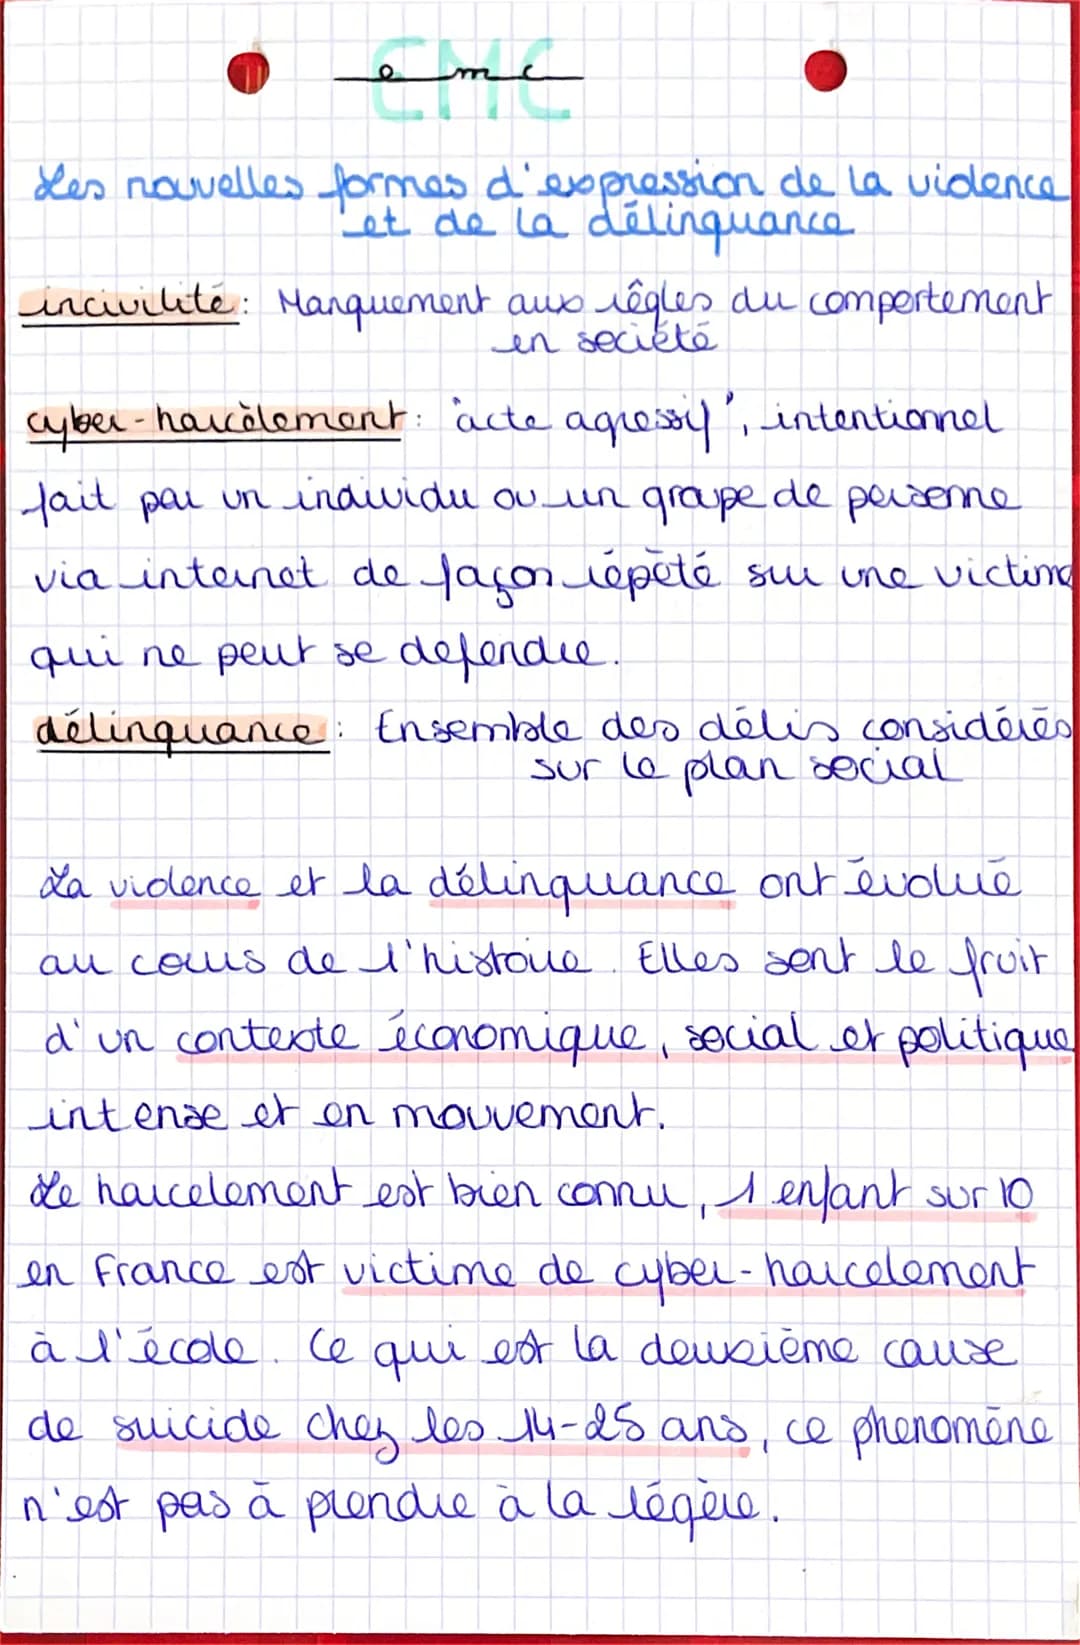 EMC
emc
Les nouvelles formes d'expression de la violence
et de la délinquance
incivilité : Manquement aux règles du comportement
en société
cyber-harcèlement : "acte agressif", intentionnel
fait par un individu ou un groupe de personne
via internet de façon répété sur une victime
qui ne peut se defendre.
délinquance : Ensemble des délis considérés
sur le plan social
La violence et la délinquance ont évolué
au cours de l'histoire. Elles sont le fruit
d'un contexte économique, social et politique
intense et en mouvement.
Le harcelement est bien connu, 1 enfant sur 10
en France est victime de cyber-harcelement
à l'école. Ce qui est la deuxième cause
de suicide chez les 14-25 ans, ce phenomène
n'est pas à prendre à la légère.